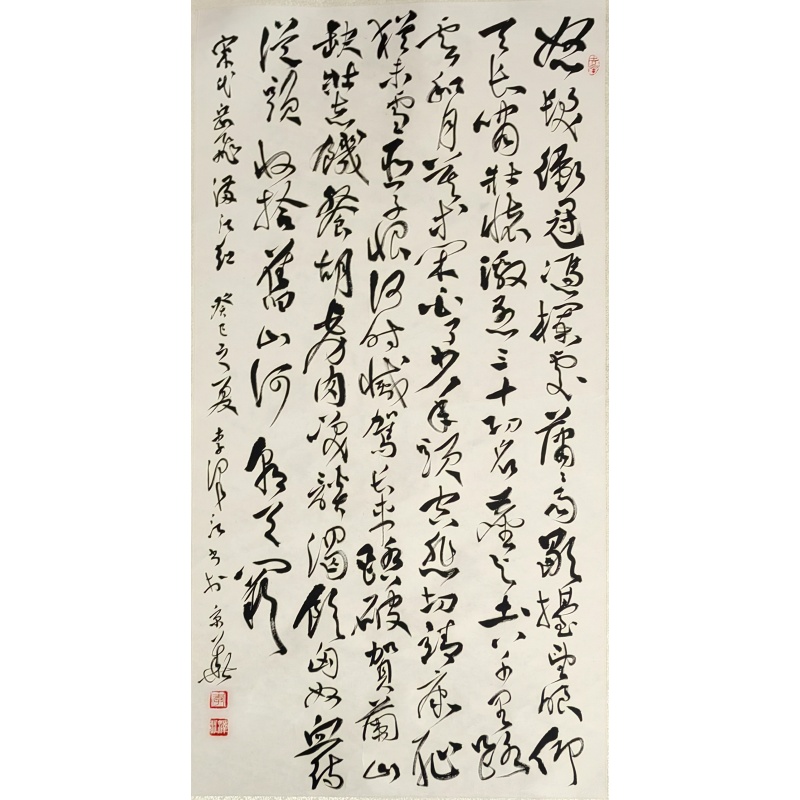 怒髮衝冠憑欄處蕭〻雨歇擡望眼仰
天長嘯壯懷激烈三十功名塵與土八千里路
雲和月莫等閑白了少年頭空悲切靖康恥
猶未雪臣子恨何時滅駕長車踏破賀蘭山
缺壯志饑餐胡虜肉笑談渴飲匈奴血待
從頭收拾舊山河朝天闕
宋代岳飛滿江紅 癸巳之夏 李書於京華